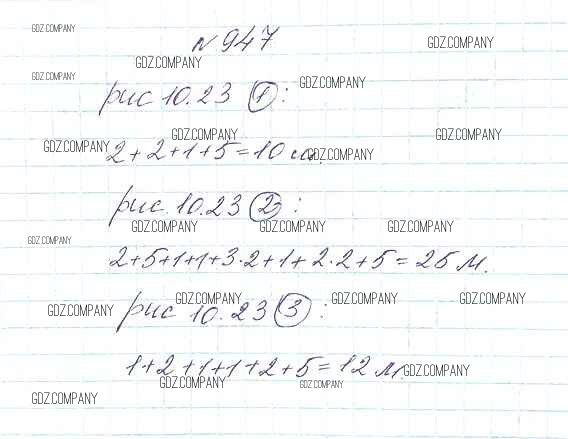 GDZ.COMPANY
№ 947
GDZ.COMPANY
GDZ.COMPANY
GDZ.COMPANY
GDZ.COMPANY
рис 10.23 ①:
GDZ.COMPANY
GDZ.COMPANY
GDZ.COMPANY
2+2+1+5=10 см.
GDZ.COMPANY
рис. 10.23 ②:
GDZ.COMPANY GDZ.COMPANY GDZ.COMPANY
GDZ.COMPANY
2+5+1+1+3·2+1+2·2+5=25 м.
GDZ.COMPANY GDZ.COMPANY GDZ.COMPANY
GDZ.COMPANY
рис 10.23 ③:
1+2+1+1+2+5=12 м.
GDZ.COMPANY
GDZ.COMPANY GDZ.COMPANY
GDZ.COMPANY